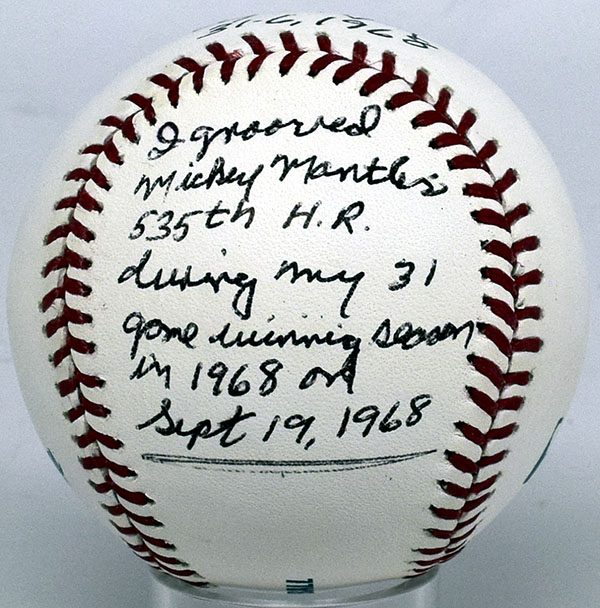 31-6, 1968
I grooved
Mickey Mantles
535th H.R.
during my 31
game winning season
in 1968 on
Sept 19, 1968